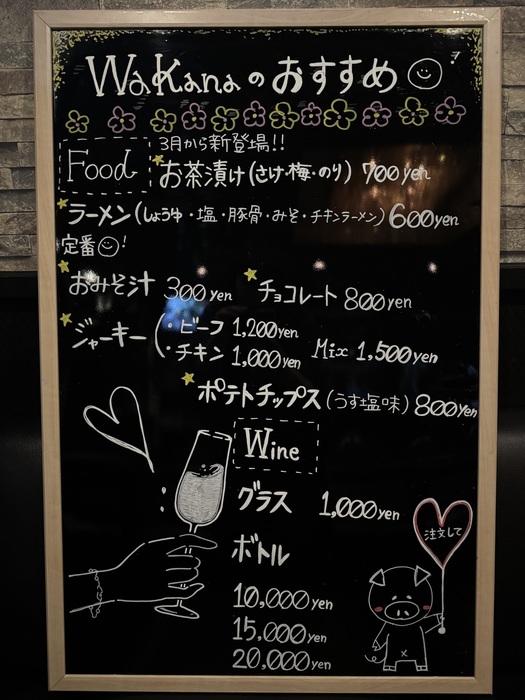 WaKanaのおすすめ
3月から新登場!!
Food
お茶漬け(さけ・梅・のり) 700yen
ラーメン(しょうゆ・塩・豚骨・みそ・チキンラーメン) 600yen
定番!
おみそ汁 300yen チョコレート 800yen
ジャーキー(・ビーフ 1,200yen
・チキン 1,000yen Mix 1,500yen
ポテトチップス(うす塩味) 800yen
Wine
グラス 1,000yen
注文して
ボトル
10,000yen
15,000yen
20,000yen